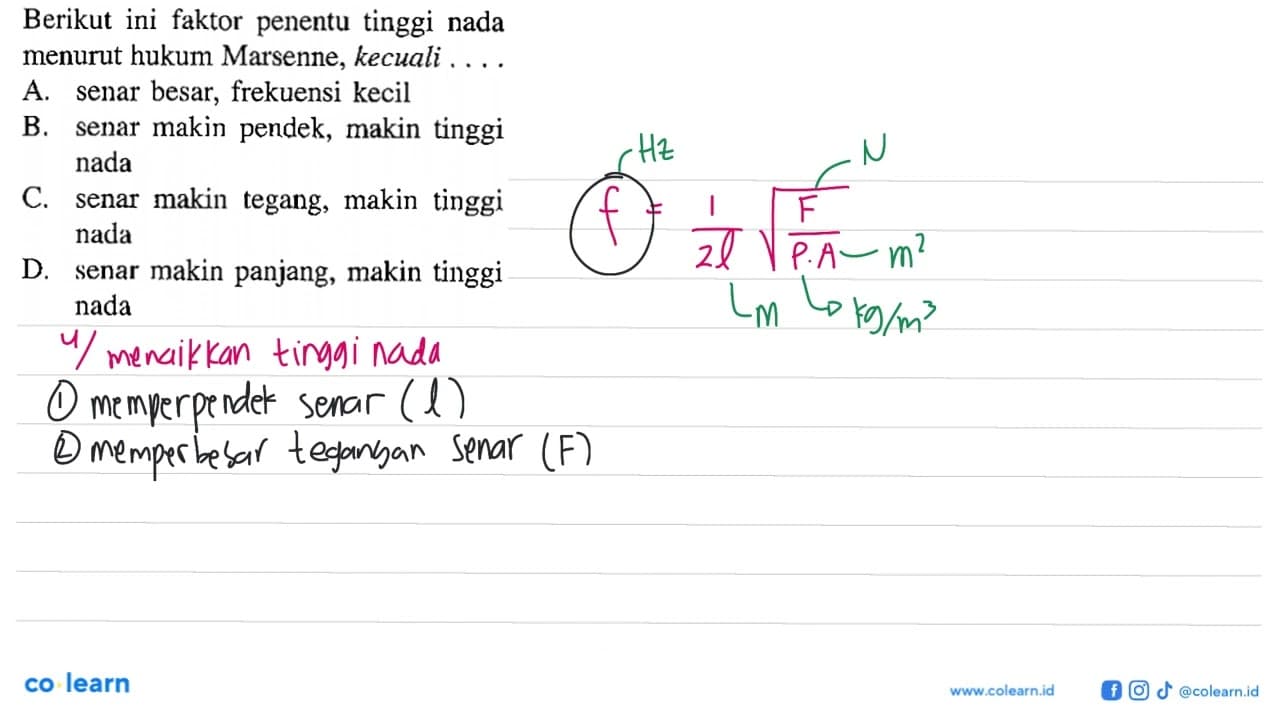 Berikut ini faktor penentu tinggi nada
menurut hukum Marsenne, kecuali . . . .
A. senar besar, frekuensi kecil
B. senar makin pendek, makin tinggi
nada
C. senar makin tegang, makin tinggi
nada
D. senar makin panjang, makin tinggi
nada
Hz
N
f = 1/2l √F/ρ.A
m²
m
kg/m³
u/ menaikkan tinggi nada
① memperpendek senar (l)
② memperbesar tegangan senar (F)
co learn
www.colearn.id
@colearn.id